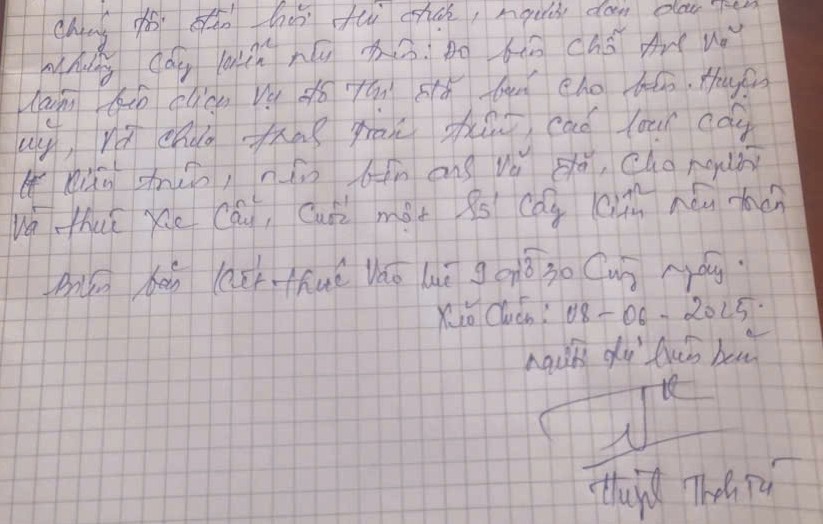 Chúng tôi đến hỏi thì được, người dân
những cây kiểng nêu trên: Do bên chỗ Anh Vũ
làm bên dịch vụ đô thị đã bán cho bên Huyện
uỷ, và chưa thanh toán tiền, các loại cây
kiểng trên, nên bên anh Vũ đã, cho người
và thuê xe cẩu, một số cây kiểng nêu trên
Biên bản kết thúc vào lúc 9 giờ 30 Cùng ngày.
08-06-2025.
người lập biên bản
Huỳnh Thanh Tú